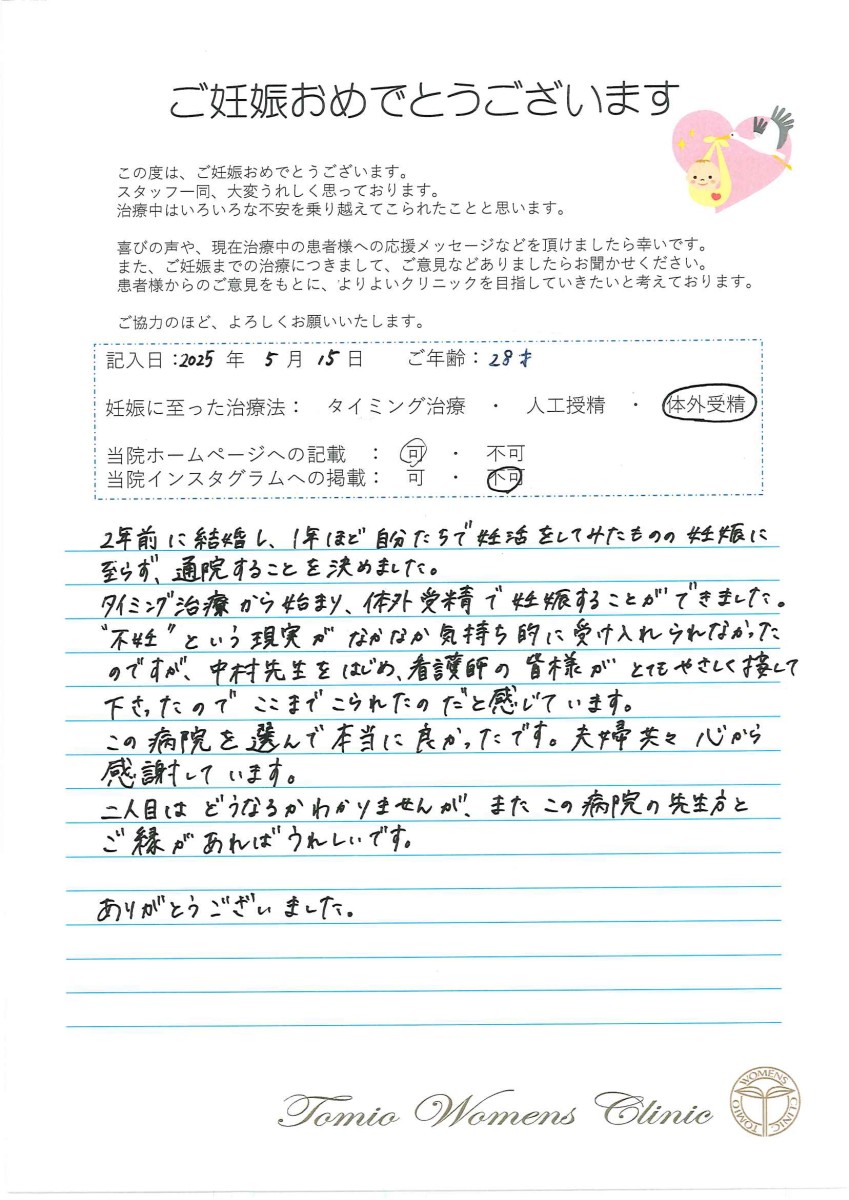 ご妊娠おめでとうございます
この度は、ご妊娠おめでとうございます。
スタッフ一同、大変うれしく思っております。
治療中はいろいろな不安を乗り越えてこられたことと思います。
喜びの声や、現在治療中の患者様への応援メッセージなどを頂けましたら幸いです。
また、ご妊娠までの治療につきまして、ご意見などありましたらお聞かせください。
患者様からのご意見をもとに、よりよいクリニックを目指していきたいと考えております。
ご協力のほど、よろしくお願いいたします。
記入日：2025 年 5 月 15 日 ご年齢：28才
妊娠に至った治療法： タイミング治療 ・ 人工授精 ・ 体外受精
当院ホームページへの記載 ： 可 ・ 不可
当院インスタグラムへの掲載： 可 ・ 不可
2年前に結婚し、1年ほど自分たちで妊活をしてみたものの妊娠に
至らず、通院することを決めました。
タイミング治療から始まり、体外受精で妊娠することができました。
"不妊"という現実がなかなか気持ち的に受け入れられなかった
のですが、中村先生をはじめ、看護師の皆様がとてもやさしく接して
下さったのでここまでこられたのだと感じています。
この病院を選んで本当に良かったです。夫婦共々心から
感謝しています。
二人目はどうなるかわかりませんが、またこの病院の先生方と
ご縁があればうれしいです。
ありがとうございました。
Tomio Womens Clinic
TOMIO WOMENS CLINIC